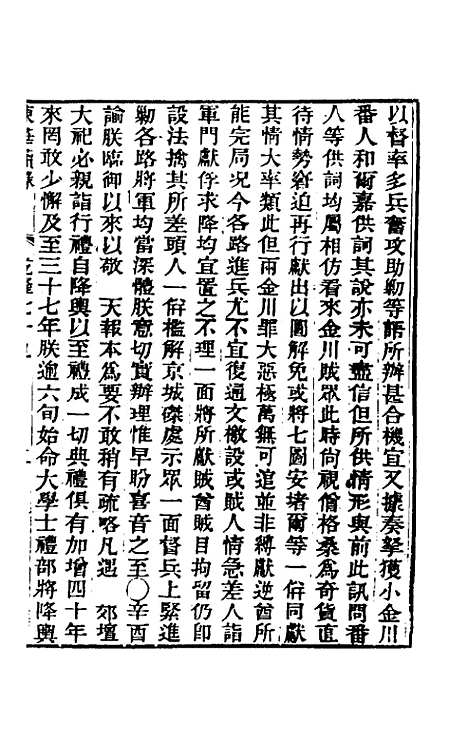 以督率多兵奮攻助勦等語所辦甚合機宜又據奏拏獲小金川
番人和爾嘉供詞其說亦未可盡信但所供情形與前此訊問番
人等供詞均屬相仿看來金川賊眾此時尙視僧格桑爲奇貨直
待情勢窮迫再行獻出以圖解免或將七圖安堵爾等一倂同獻
其情大率類此但兩金川罪大惡極萬無可逭並非縛獻逆酋所
能完局况今各路進兵尤不宜復通文檄設或賊人情急差人詣
軍門獻俘求降均宜置之不理一面將所獻賊酋賊目拘留仍卽
設法擒其所差頭人一倂檻解京城磔處示眾一面督兵上緊進
勦各路將軍均當深體朕意切實辦理惟早盼喜音之至○辛酉
諭朕臨御以來以敬　天報本爲要不敢稍有疏略凡遇　郊壇
大祀必親詣行禮自降輿以至禮成一切典禮俱有加增四十年
來罔敢少懈及至三十七年朕逾六旬始命大學士禮部將降輿
東華續錄　乾隆七十九